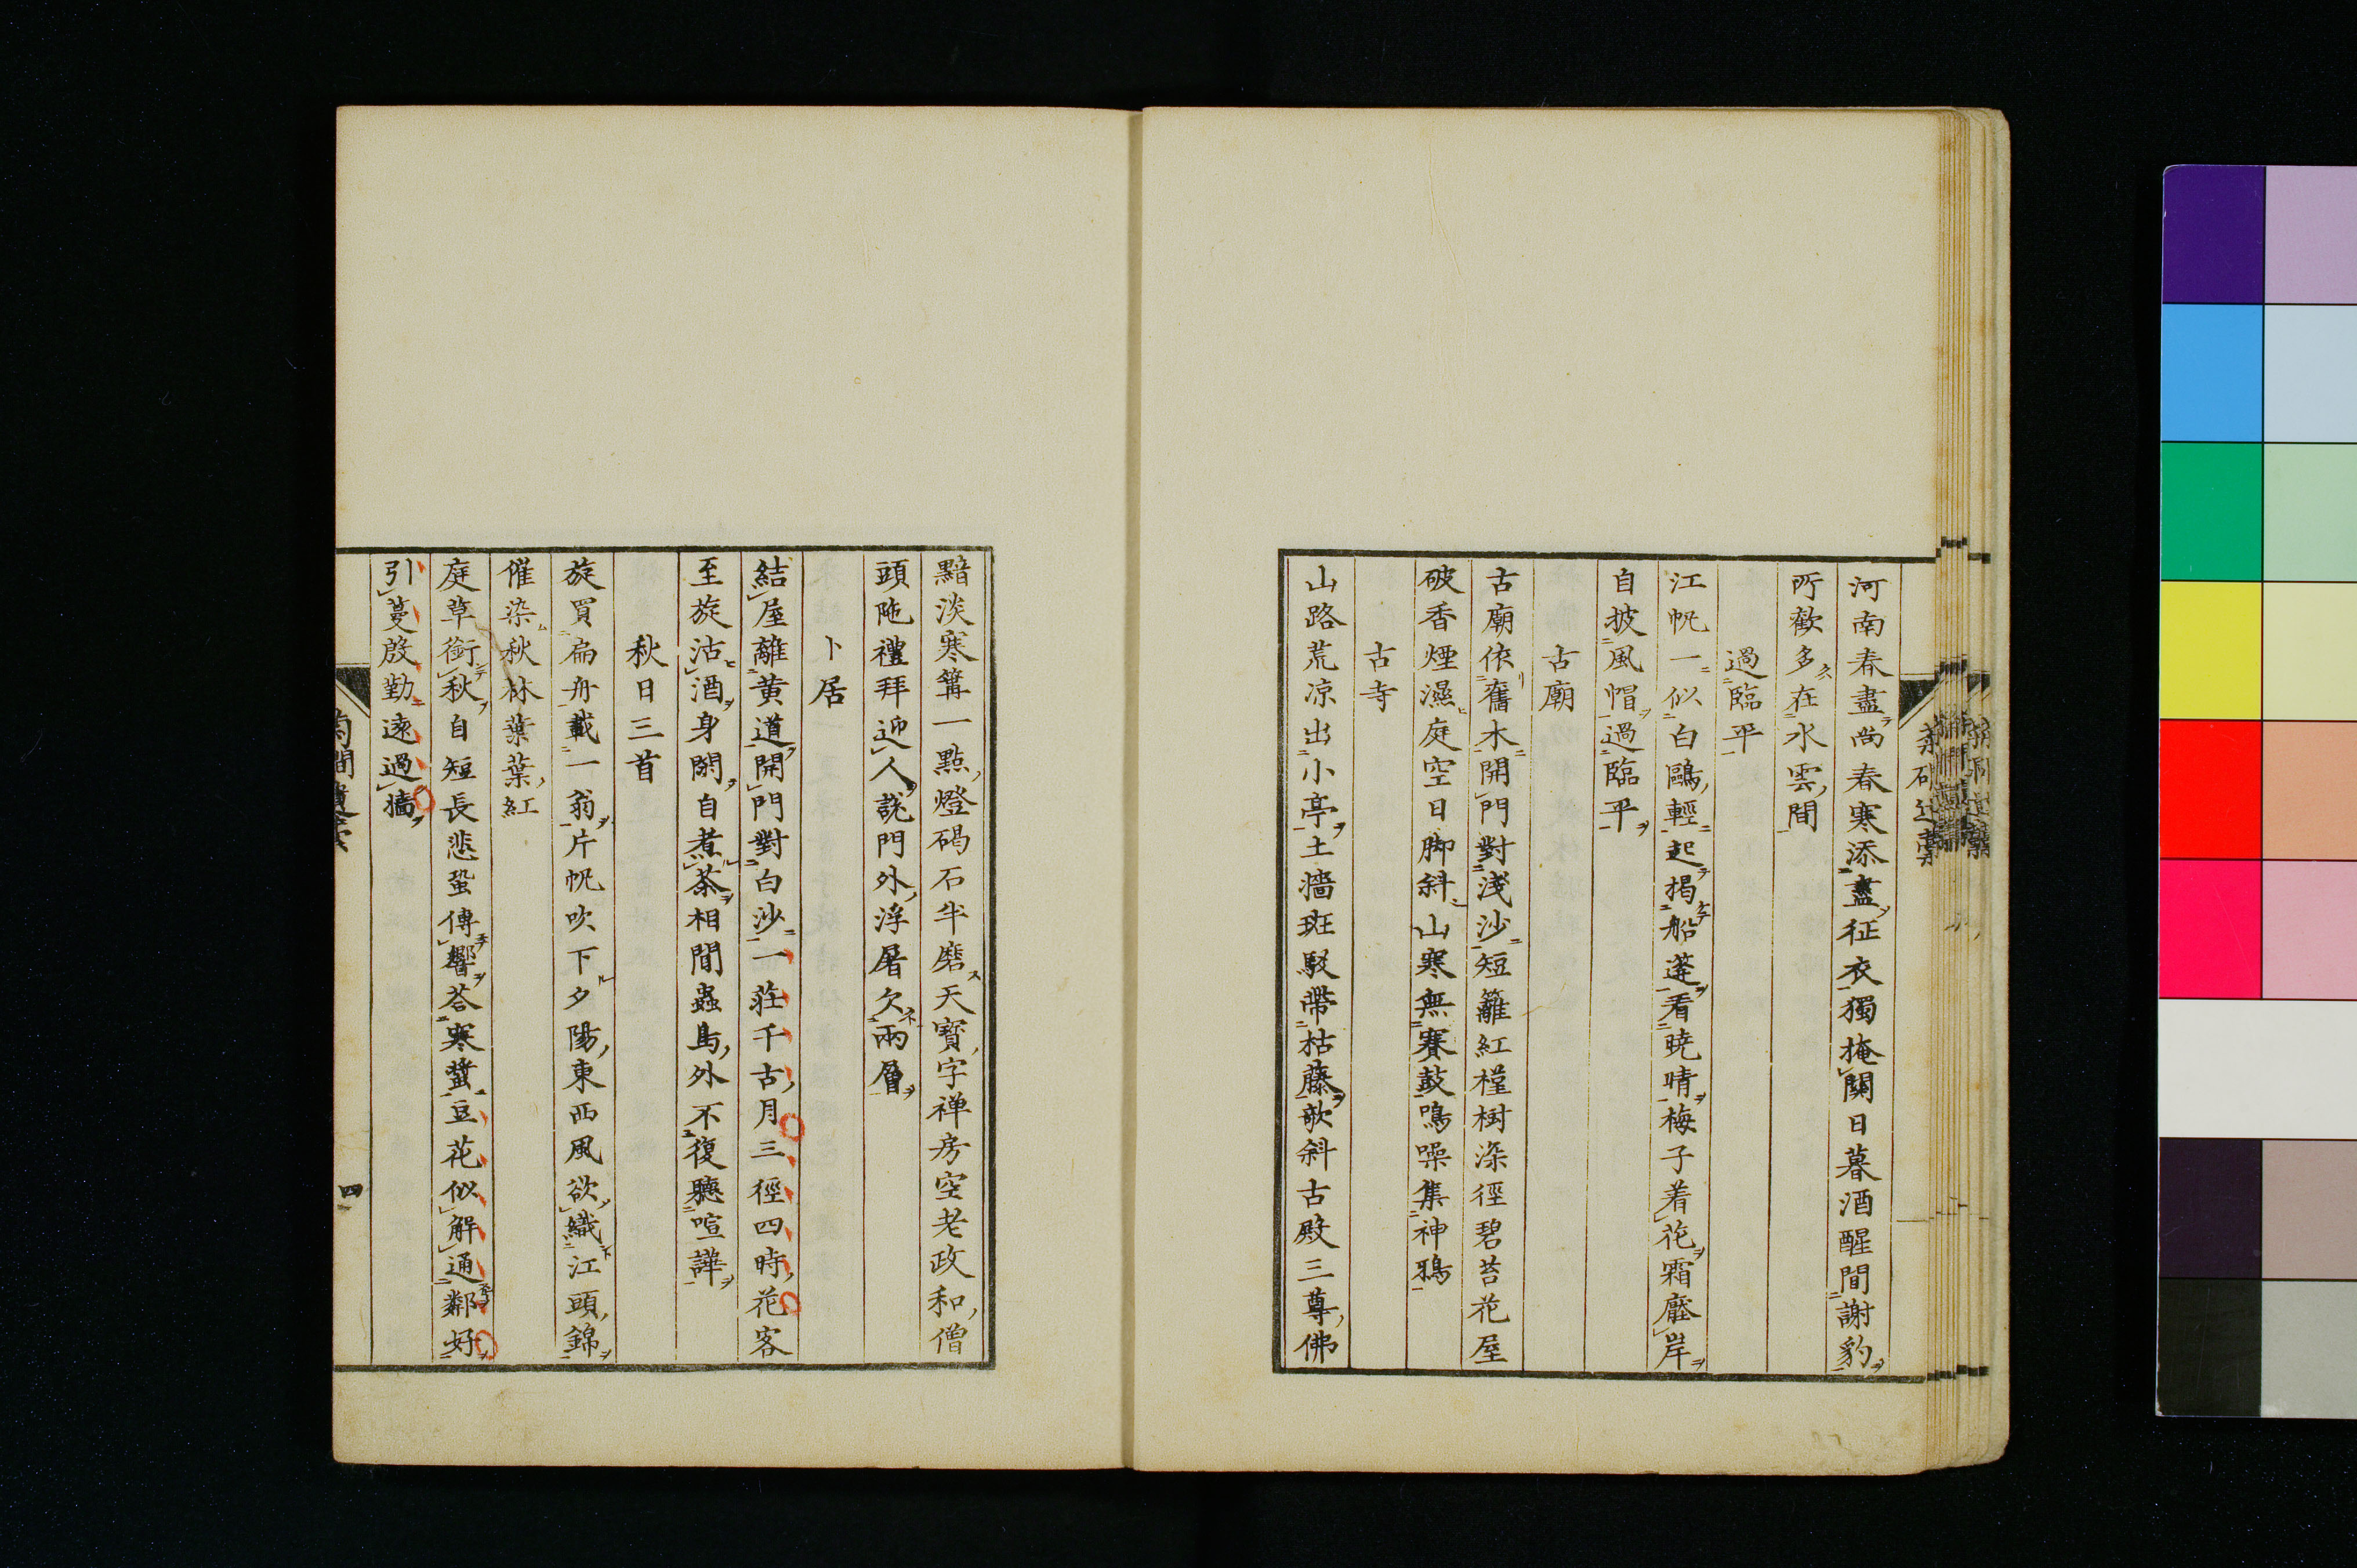 河南春盡尚春寒添盡征衣獨掩關日暮酒醒間謝豹
所歡多在水雲間
過臨平
江帆一似白鷗輕起揭船蓬看曉晴梅子着花霜壓岸
自披風帽過臨平
古廟
古廟依舊木開門對淺沙短籬紅槿樹深徑碧苔花屋
破香煙濕庭空日脚斜山寒無賽鼓鳴噪集神鴉
古寺
山路荒凉出小亭土墻斑駁帶枯藤欹斜古殿三尊佛
黯淡寒篝一點燈碣石半磨天寳字禅房空老政和僧
頭陁禮拜迎人說門外浮屠欠兩層
卜居
結屋離黄道開門對白沙一莊千古月三徑四時花客
至旋沽酒身閑自煮茶相間蟲鳥外不復聽喧譁
秋日三首
旋買扁舟載一翁片帆吹下夕陽東西風欲織江頭錦
催染秋林葉葉紅
庭草銜秋自短長悲蛩傳響荅寒螿豆花似解通鄰好
引蔓殷勤遠過墻
四